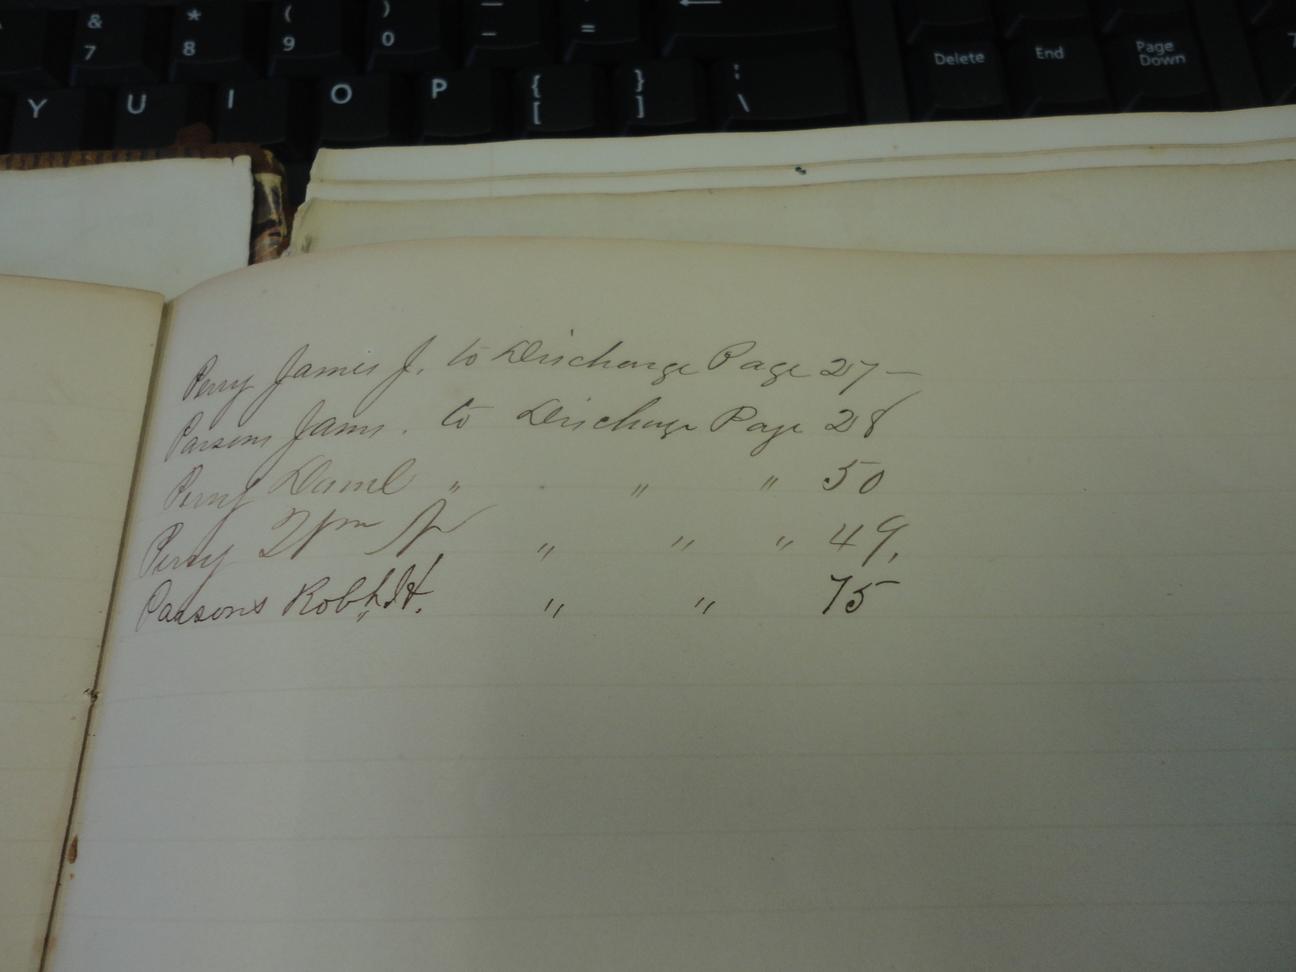 & * ( ) — +
7 8 9 0 - =
Delete End Page Down 7
Y U I O P { [ } ] : \
Perry James J. to Discharge Page 27—
Parsons James. to Discharge Page 28
Perry Daml " " " 50
Perry Wm Jr " " " 49.
Parsons Robt H. " " 75